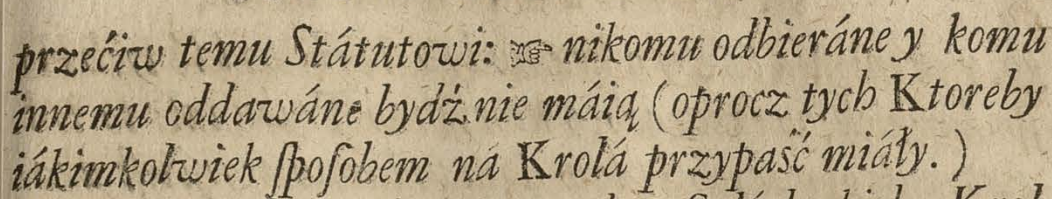 przećiw temu Státutowi: ☞ nikomu odbieráne y komu
innemu oddawáne bydź nie máią (oprocz tych Ktoreby
iákimkolwiek ſpoſobem ná Krolá przypaść miáły.)